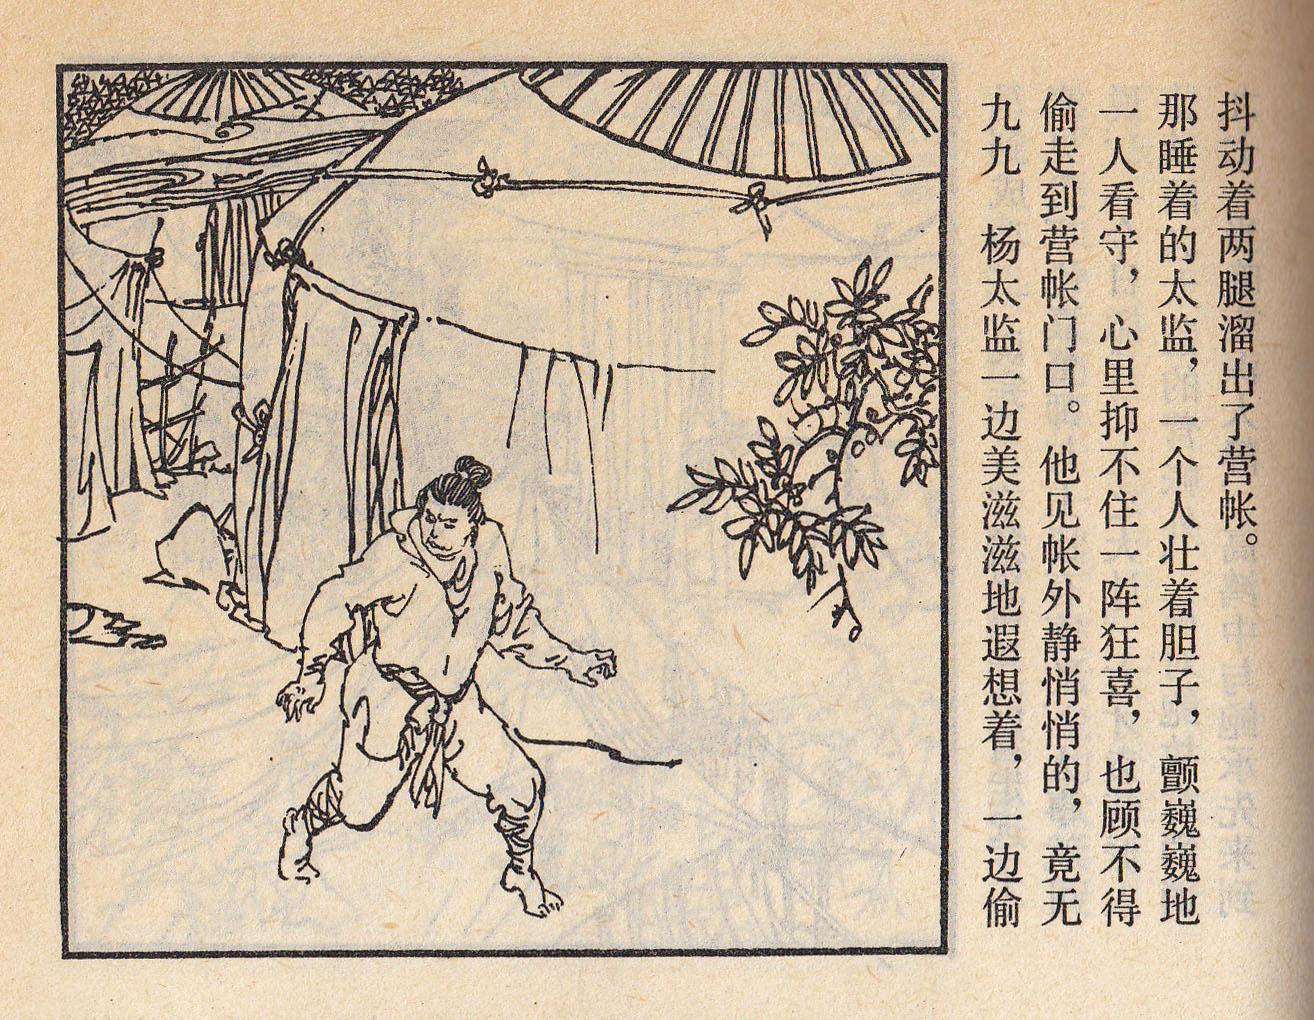 九九　杨太监一边美滋滋地遐想着，一边偷
偷走到营帐门口。他见帐外静悄悄的，竟无
一人看守，心里抑不住一阵狂喜，也顾不得
那睡着的太监，一个人壮着胆子，颤巍巍地
抖动着两腿溜出了营帐。